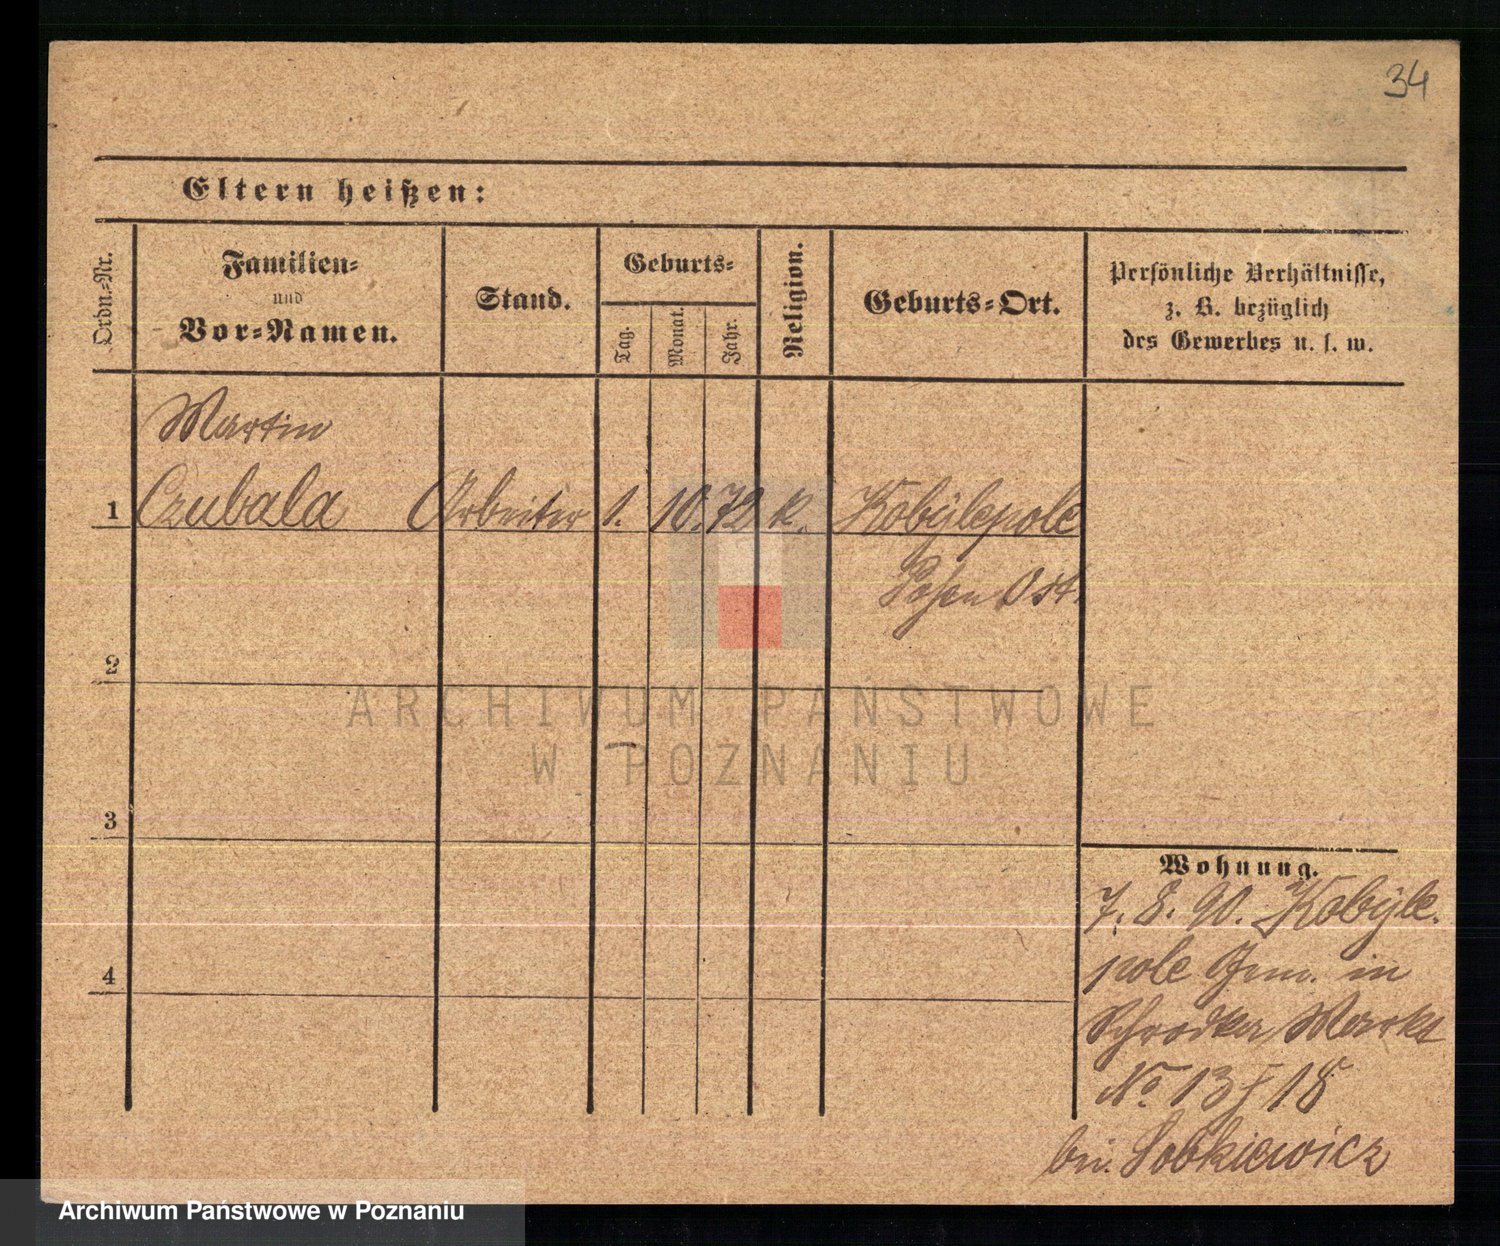 34
Eltern heißen:
Ordn.-Nr.
Familien-
und
Vor-Namen.
Stand.
Geburts-
Tag.
Monat.
Jahr.
Religion.
Geburts-Ort.
Persönliche Verhältnisse,
z. B. bezüglich
des Gewerbes u. s. w.
Martin
1 Czubala Arbeiter 1. 10. 72 k. Kobylepole
Posen Ost.
2
ARCHIWUM PAŃSTWOWE
W POZNANIU
3
Wohnung.
7. 8. 90. Kobyle-
pole in
4
Schrodker Markt
No. 13 I 18
bei Sobkiewicz
Archiwum Państwowe w Poznaniu